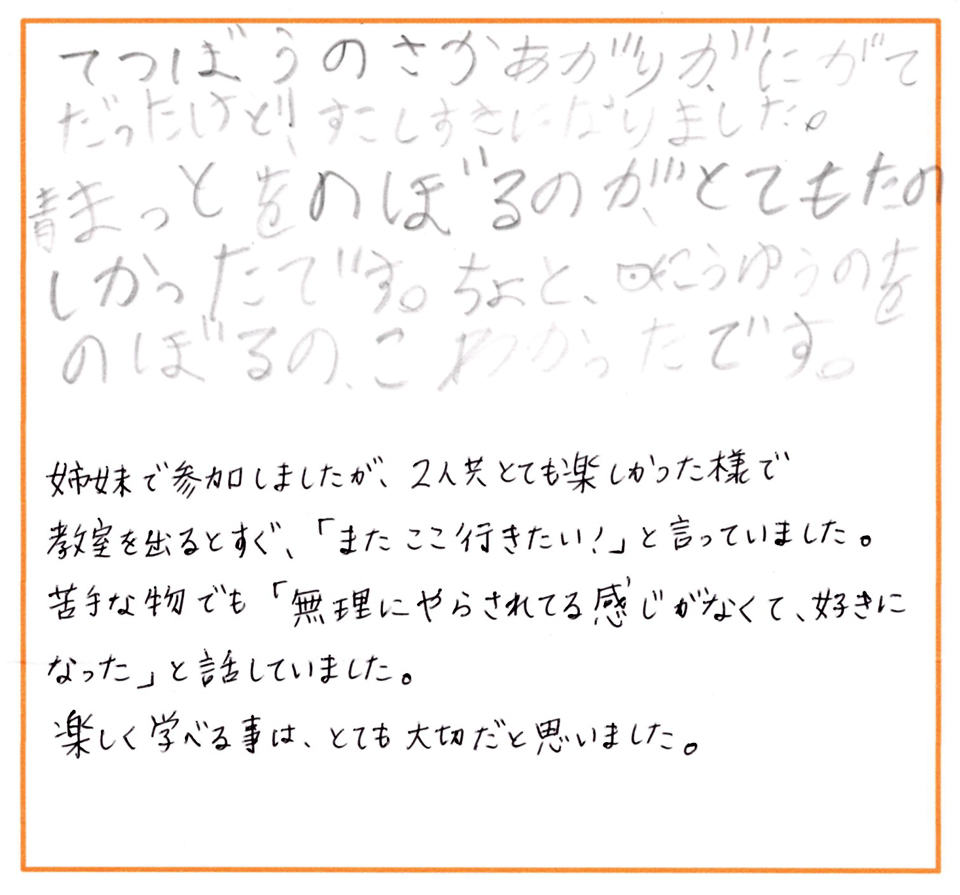 てつぼうのさかあがりが、にがて
だったけど、すこしすきになりました。
青まっとをのぼるのが、とてもたの
しかったです。ちょと、にうゆうのを
のぼるの、こわかったです。
姉妹で参加しましたが、2人共とても楽しかった様で
教室を出るとすぐ、「またここ行きたい!」と言っていました。
苦手な物でも「無理にやらされてる感じがなくて、好きに
なった」と話していました。
楽しく学べる事は、とても大切だと思いました。